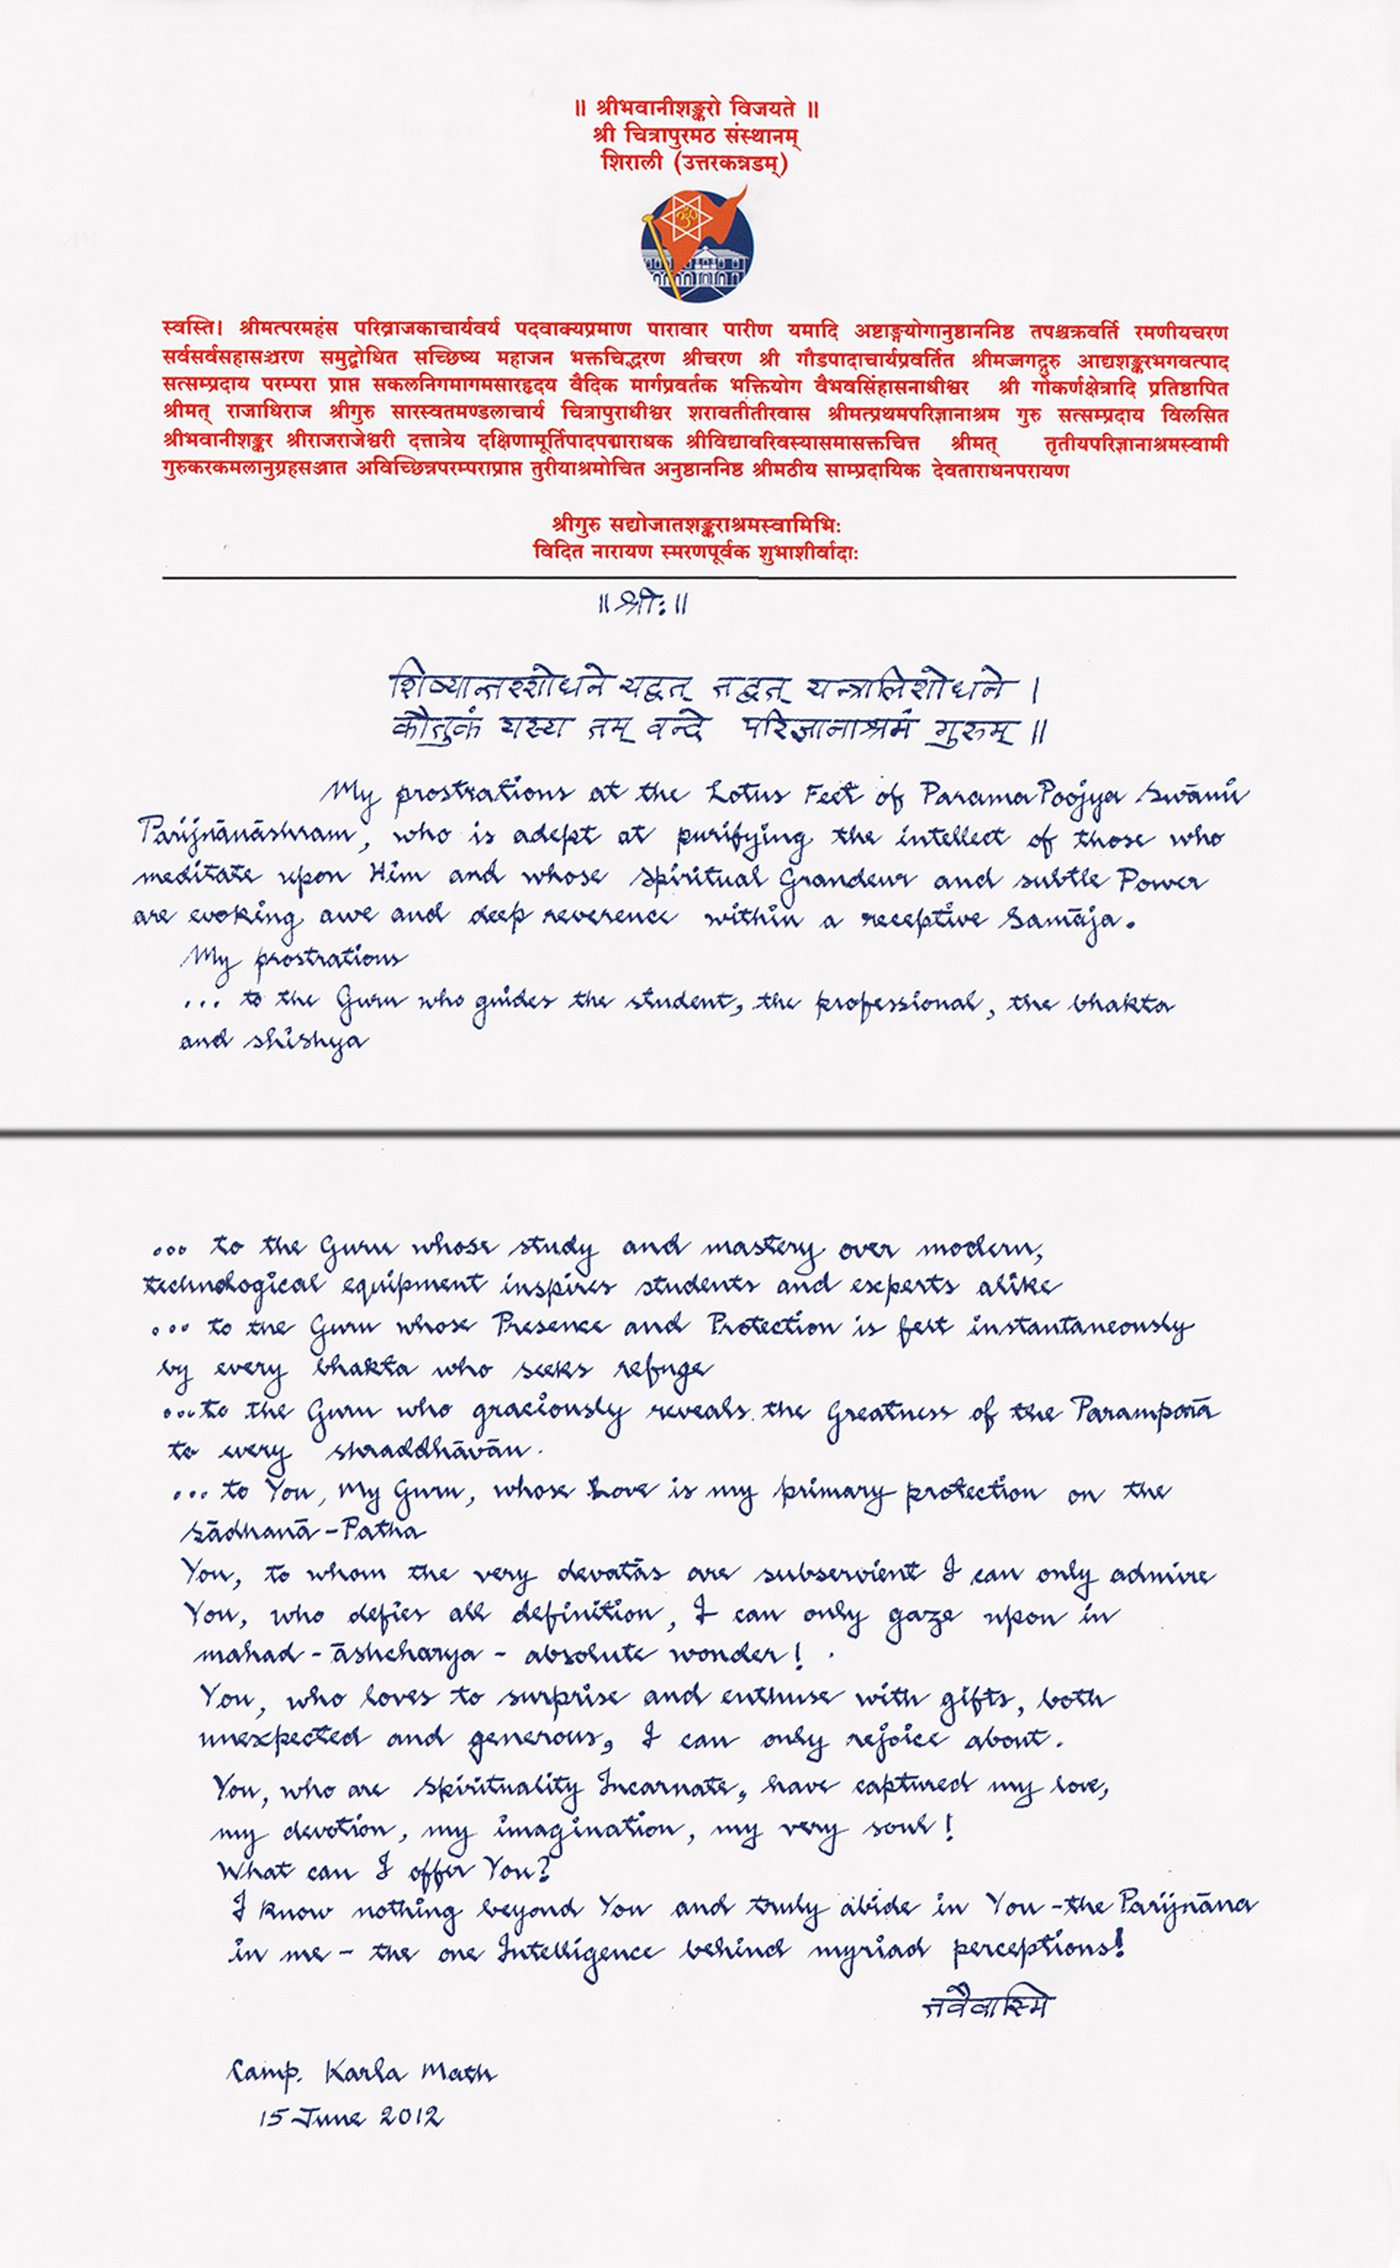 ॥ श्रीभवानीशङ्करो विजयते ॥
श्री चित्रापुरमठ संस्थानम्
शिराली (उत्तरकन्नडम्)
स्वस्ति। श्रीमत्परमहंस परिव्राजकाचार्यवर्य पदवाक्यप्रमाण पारावार पारीण यमादि अष्टाङ्गयोगानुष्ठाननिष्ठ तपश्चक्रवर्ति रमणीयचरण
सर्वसर्वसहासञ्चरण समुद्बोधित सच्छिष्य महाजन भक्तचिद्भरण श्रीचरण श्री गौडपादाचार्यप्रवर्तित श्रीमज्जगद्गुरु आद्यशङ्करभगवत्पाद
सत्सम्प्रदाय परम्परा प्राप्त सकलनिगमागमसारहृदय वैदिक मार्गप्रवर्तक भक्तियोग वैभवसिंहासनाधीश्वर श्री गोकर्णक्षेत्रादि प्रतिष्ठापित
श्रीमत् राजाधिराज श्रीगुरु सारस्वतमण्डलाचार्य चित्रापुराधीश्वर शरावतीतीरवास श्रीमत्प्रथमपरिज्ञानाश्रम गुरु सत्सम्प्रदाय विलसित
श्रीभवानीशङ्कर श्रीराजराजेश्वरी दत्तात्रेय दक्षिणामूर्तिपादपद्माराधक श्रीविद्यावरिवस्यासमासक्तचित्त श्रीमत् तृतीयपरिज्ञानाश्रमस्वामी
गुरुकरकमलानुग्रहसञ्जात अविच्छिन्नपरम्पराप्राप्त तुरीयाश्रमोचित अनुष्ठाननिष्ठ श्रीमठीय साम्प्रदायिक देवताराधनपरायण
श्रीगुरु सद्योजातशङ्कराश्रमस्वामिभिः
विदित नारायण स्मरणपूर्वक शुभाशीर्वादाः
॥ श्रीः ॥
शिष्यान्तश्शोधने यद्वत् तद्वत् यन्त्रालिशोधने ।
कौतुकं यस्य तम् वन्दे परिज्ञानाश्रमं गुरुम् ॥
My prostrations at the Lotus Feet of Parama Poojya Swāmi
Parijnānāshram, who is adept at purifying the intellect of those who
meditate upon Him and whose Spiritual Grandeur and subtle Power
are evoking awe and deep reverence within a receptive Samāja.
My prostrations
... to the Guru who guides the student, the professional, the bhakta
and shishya
... to the Guru whose study and mastery over modern,
technological equipment inspires students and experts alike
... to the Guru whose Presence and Protection is felt instantaneously
by every bhakta who seeks refuge
... to the Guru who graciously reveals the Greatness of the Paramparā
to every shraddhāvān.
... to You, My Guru, whose Love is my primary protection on the
Sādhanā-Patha
You, to whom the very devatās are subservient I can only admire
You, who defies all definition, I can only gaze upon in
mahad-āshcharya - absolute wonder!
You, who loves to surprise and enthuse with gifts, both
unexpected and generous, I can only rejoice about.
You, who are Spirituality Incarnate, have captured my love,
my devotion, my imagination, my very soul!
What can I offer You?
I know nothing beyond You and truly abide in You - the Parijnāna
in me - the one Intelligence behind myriad perceptions!
तवैवास्मि
Camp. Karla Math
15 June 2012